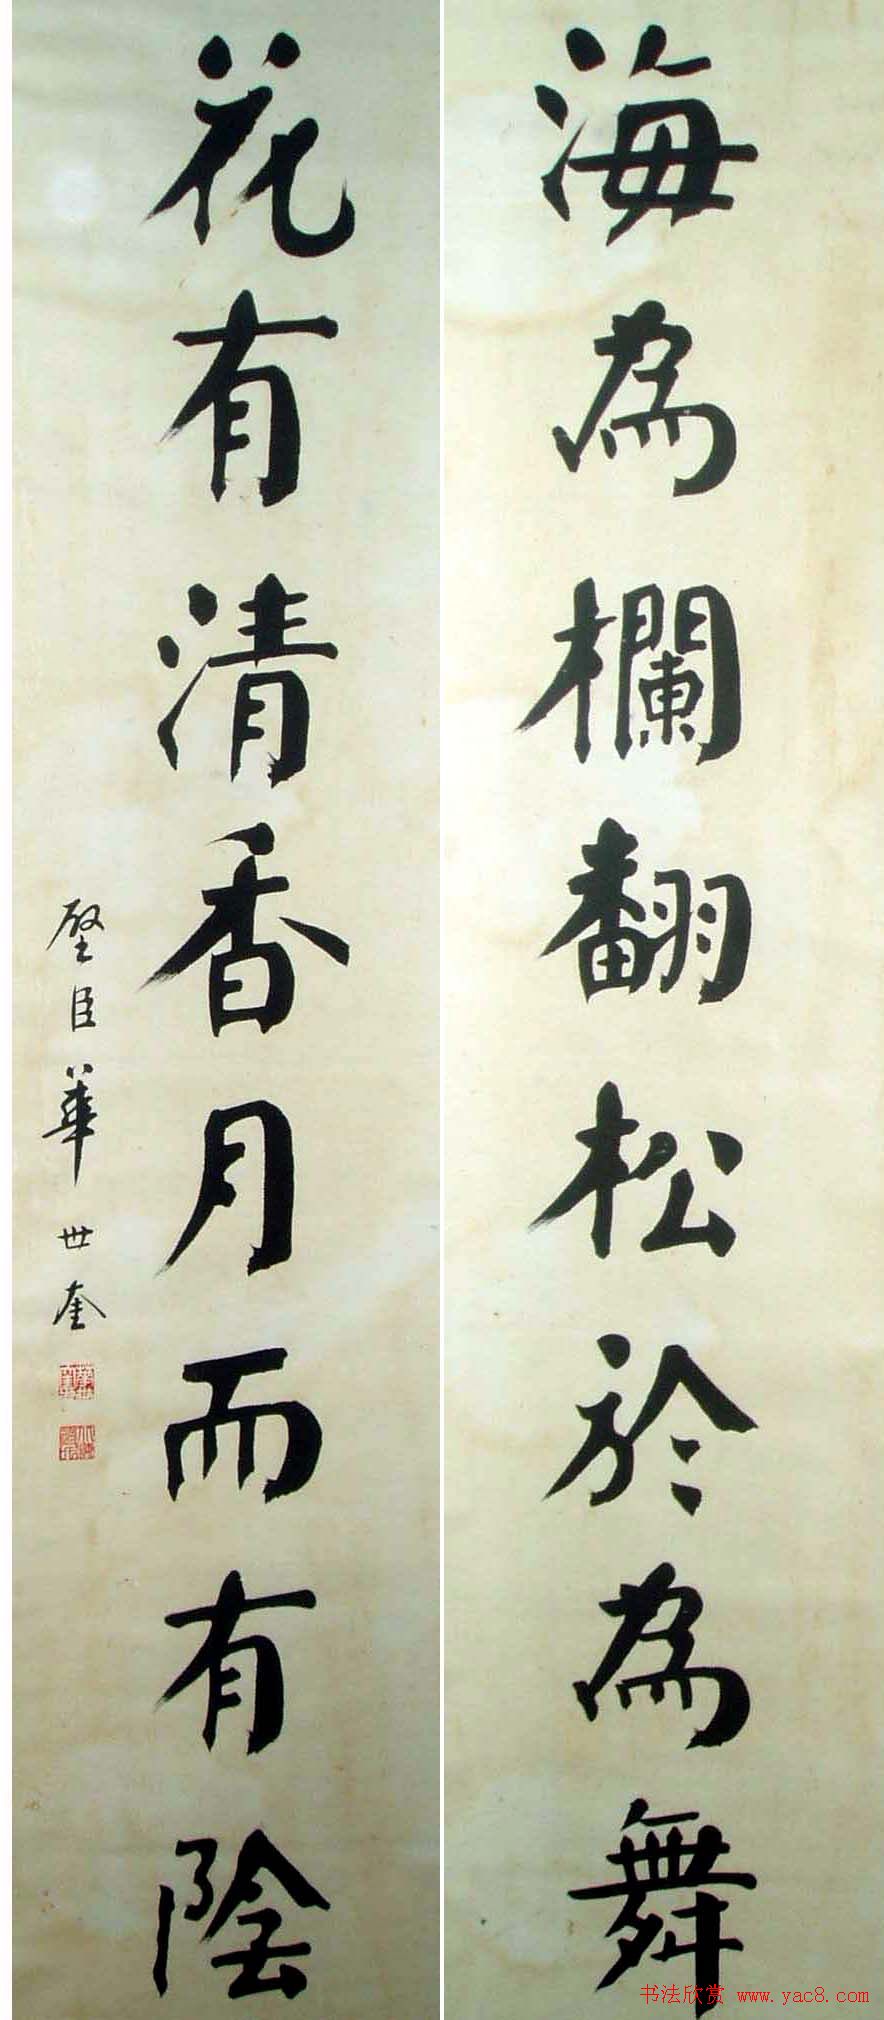 海為欄翻松於為舞
花有清香月而有陰
壁臣華世奎
书法欣赏 www.yac8.com